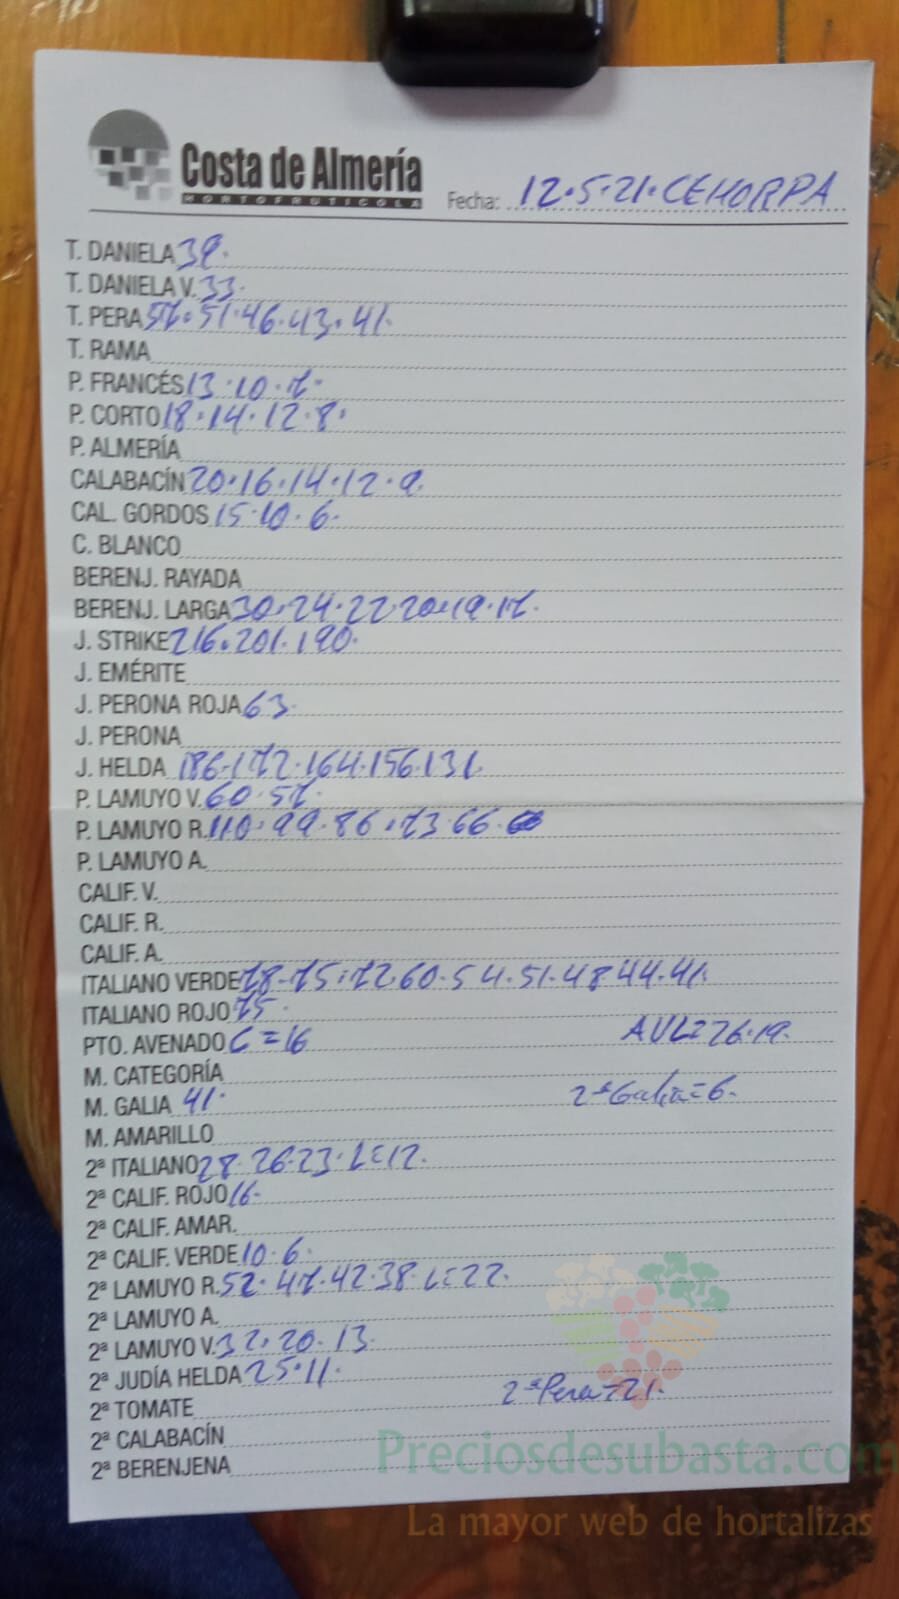 Costa de Almería
HORTOFRUTICOLA
Fecha: 12.5.21.CEHORPA
T. DANIELA 39.
T. DANIELA V. 33.
T. PERA 57.51.46.43.41.
T. RAMA
P. FRANCÉS 13.10.7.
P. CORTO 18.14.12.8.
P. ALMERÍA
CALABACÍN 20.16.14.12.9.
CAL. GORDOS 15.10.6.
C. BLANCO
BERENJ. RAYADA
BERENJ. LARGA 30.24.22 20.19.17.
J. STRIKE 216.201.190.
J. EMÉRITE
J. PERONA ROJA 63.
J. PERONA
J. HELDA 186.172.164.156.131.
P. LAMUYO V. 60.57.
P. LAMUYO R. 110.99.86.73.66.
P. LAMUYO A.
CALIF. V.
CALIF. R.
CALIF. A.
ITALIANO VERDE 78.75.72.60.54.51.48 44.41.
ITALIANO ROJO 75.
PTO. AVENADO C=16 AVL=26.19.
M. CATEGORÍA
M. GALIA 41. 2ª Galia=6.
M. AMARILLO
2ª ITALIANO 28.26.23.L=12.
2ª CALIF. ROJO 16.
2ª CALIF. AMAR.
2ª CALIF. VERDE 10.6.
2ª LAMUYO R. 52.47.42.38.L=22.
2ª LAMUYO A.
2ª LAMUYO V. 32.20.13.
2ª JUDÍA HELDA 25.11.
2ª TOMATE 2ª Pera=21.
2ª CALABACÍN
2ª BERENJENA
Preciosdesubasta.com
La mayor web de hortalizas